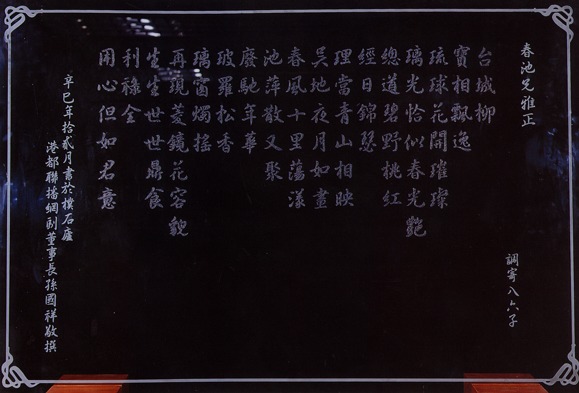 春池兄雅正
調寄八六子
台城柳
寶相飄逸
琉球花開璀璨
璃光恰似春光艷
總道碧野桃紅
經日錦瑟
理當青山相映
吳地夜月如晝
春風十里蕩漾
池萍散又聚
廢馳年華
玻羅松香
璃窗燭搖
再現菱鏡花容貌
生生世世鼎食
利祿全
用心但如君意
辛巳年拾貳月書於樸石廬
港都聯播網副董事長孫國祥敬撰